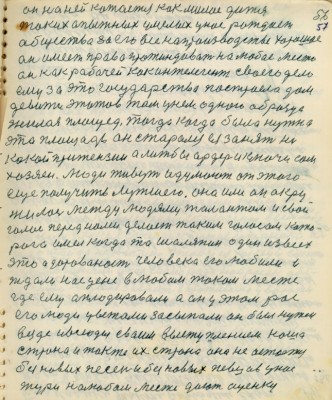 57
он на ней катается как милое дитя
таких отважных умелых у нас рождает
общества за его все на производстве хорошие
он имеет права протендовать на любое место
он как рабочей как интелегент своего дело
ему за это государства построела дом
девяти этажов там у нем одного образца
жилая площед, тогда когда была нужна
эта площадь он старался занят не
какой притензии а литбы ордер и ключи сам
хозяен. Люди живут и думают от этого
еще получить лутшего, она или он окру
жился между людями талантом и свой
голос перед нами делает таким голосом като
рого имел когда та шаляпин один из всех
это одорованость человека его любили и
ждали на сцене в любом таком месте
где ему оплодировали а он у этом рос
его люди уважали засыпали он был нужен
везде и всюду своим выступлением наша
страна и также их страна она не
без новых песен и без новых певцов у нас
жури на любом месте дают оценку